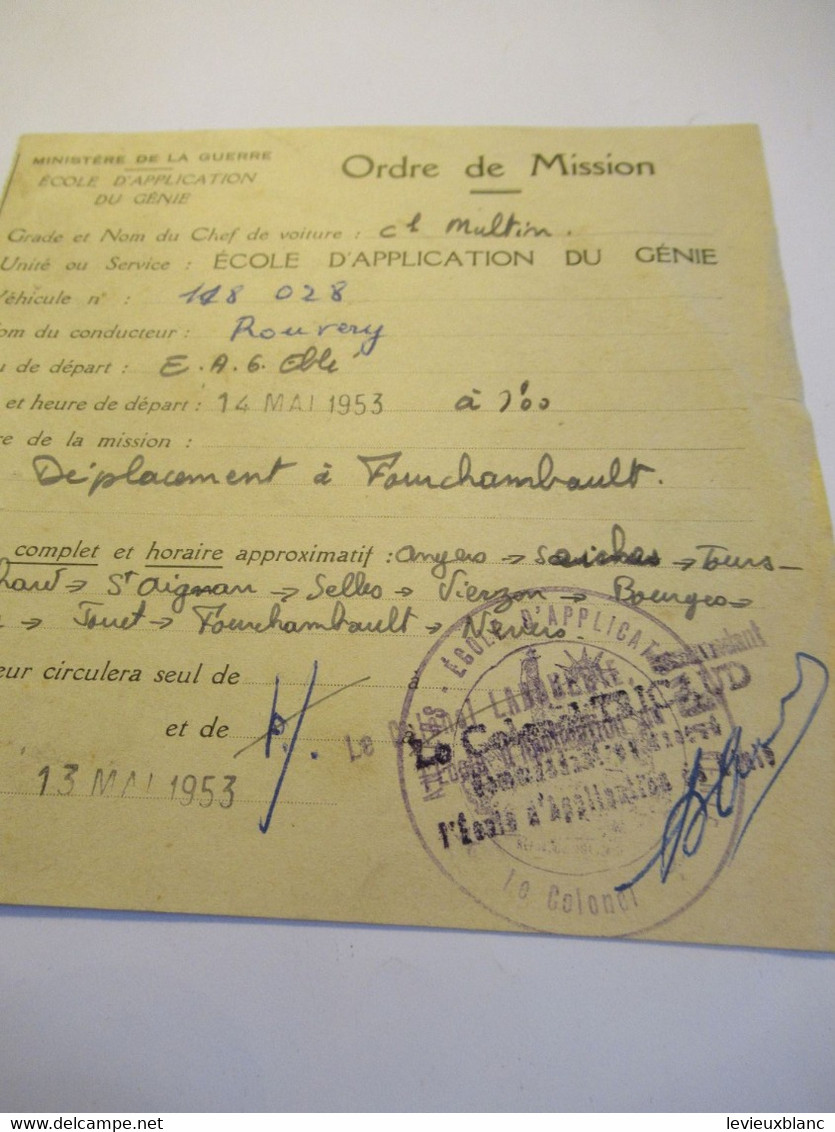 MINISTÈRE DE LA GUERRE
ÉCOLE D'APPLICATION
DU GÉNIE
Ordre de Mission
Grade et Nom du Chef de voiture : cl Multin.
Unité ou Service : ÉCOLE D'APPLICATION DU GÉNIE
Véhicule n° : 118 028
om du conducteur : Rouvery
u de départ : E.A.G. Eblé
et heure de départ : 14 MAI 1953 à 7h00
re de la mission :
Déplacement à Fourchambault.
complet et horaire approximatif : Angers → → Tours -
hard → St Aignan → Selles → Vierzon → Bourges →
→ Jouet → Fourchambault → Nevers.
eur circulera seul de à
et de
13 MAI 1953
ÉCOLE D'APPLICATI
Le Colonel LABADENIE, Commandant
Le Colonel TRICAUD
Commandant
l'École d'Application du Génie
Le Colonel
delcampe.net
levieuxblanc